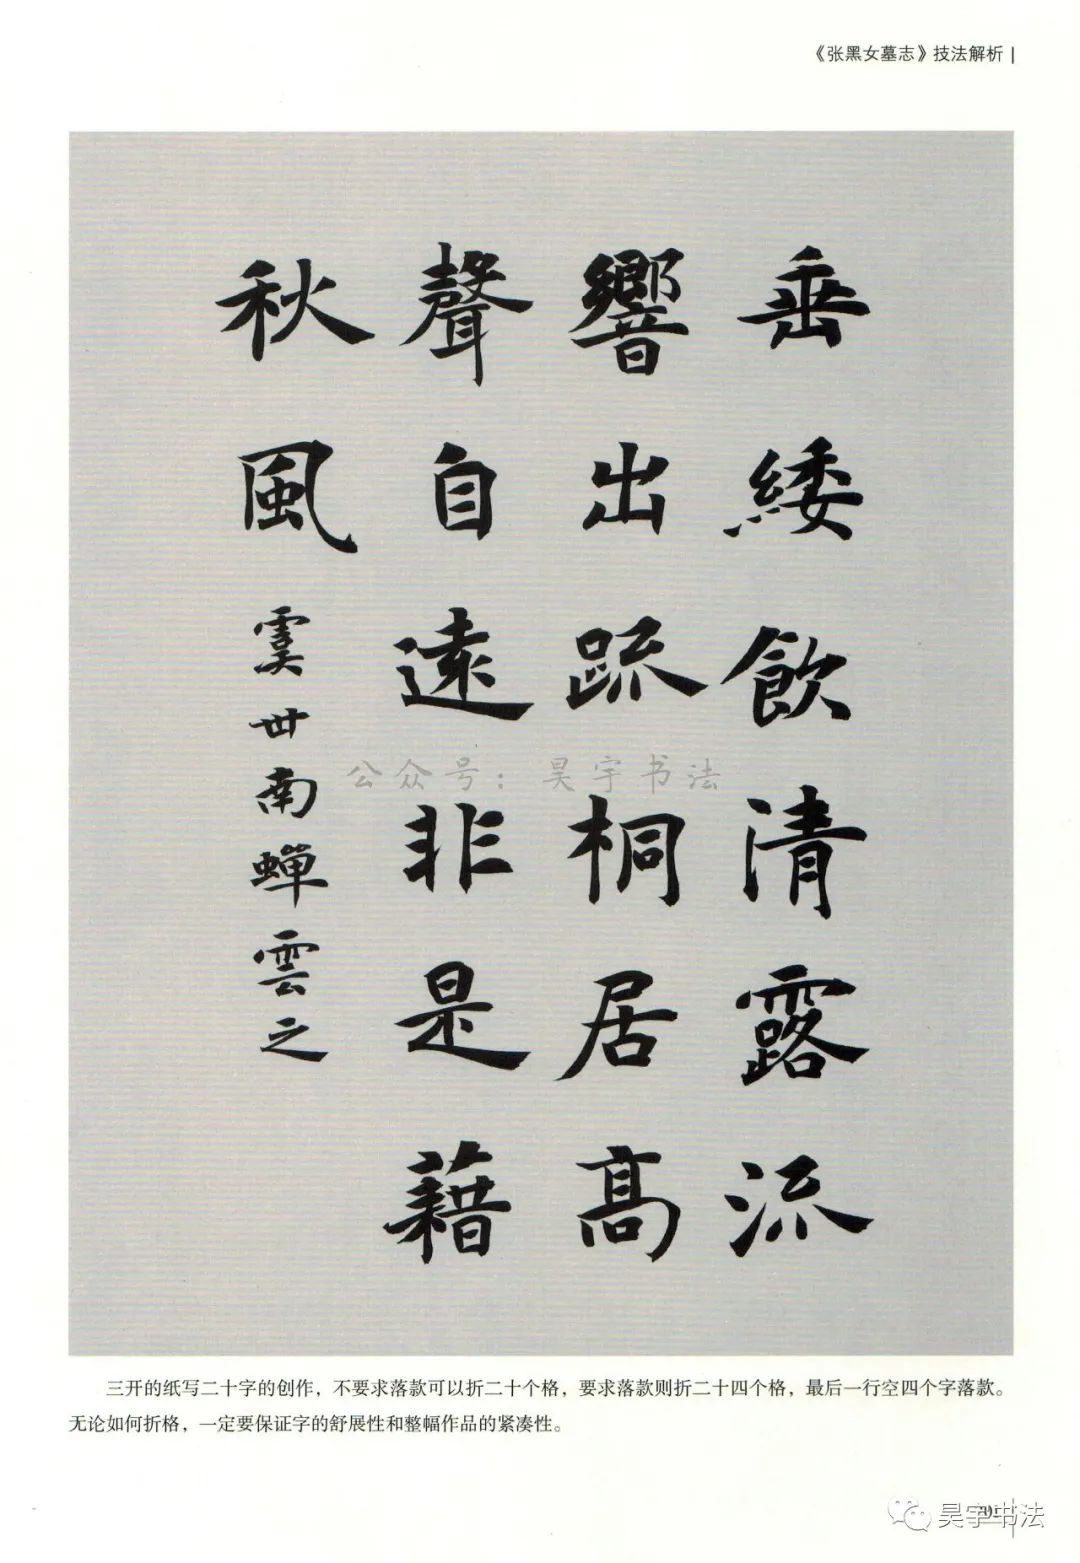 《张黑女墓志》技法解析
垂緌飲清露流
響出疏桐居高
聲自遠非是藉
秋風
虞世南蝉雲之
公众号：昊宇书法
三开的纸写二十字的创作，不要求落款可以折二十个格，要求落款则折二十四个格，最后一行空四个字落款。
无论如何折格，一定要保证字的舒展性和整幅作品的紧凑性。
昊宇书法